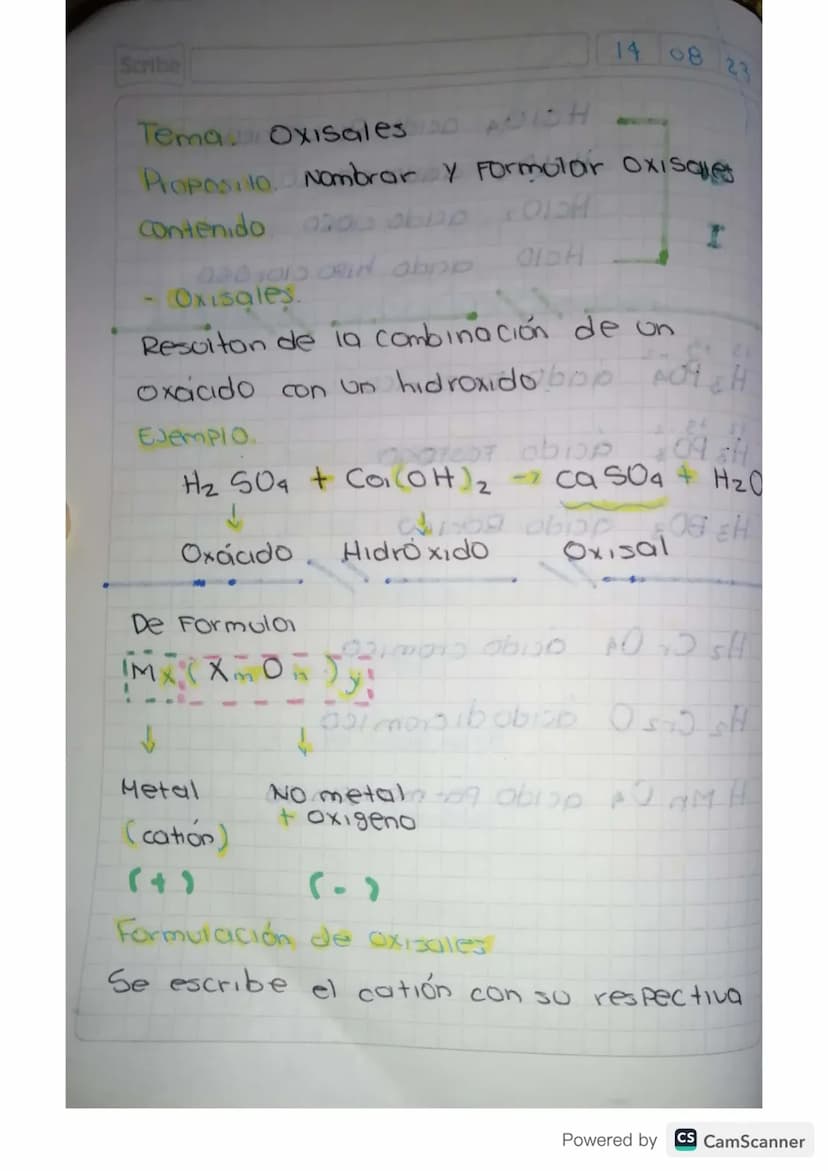 Scribe
14 08 23
Tema. Oxisales
Proposito. Nombrar y Formular oxisales
contenido
I
- Oxisales.
Resultan de la combinación de un
oxácido con un hidroxido
Ejemplo.
H2 SO4 + Ca(OH)2 → ca SO4 + H2O
Oxácido. Hidróxido Oxisal
De Formula
Mx (XmOn)y
Metal No metal
(catión) + oxigeno
(+) (-)
Formulación de oxisales
Se escribe el catión con su respectiva
Powered by CS CamScanner